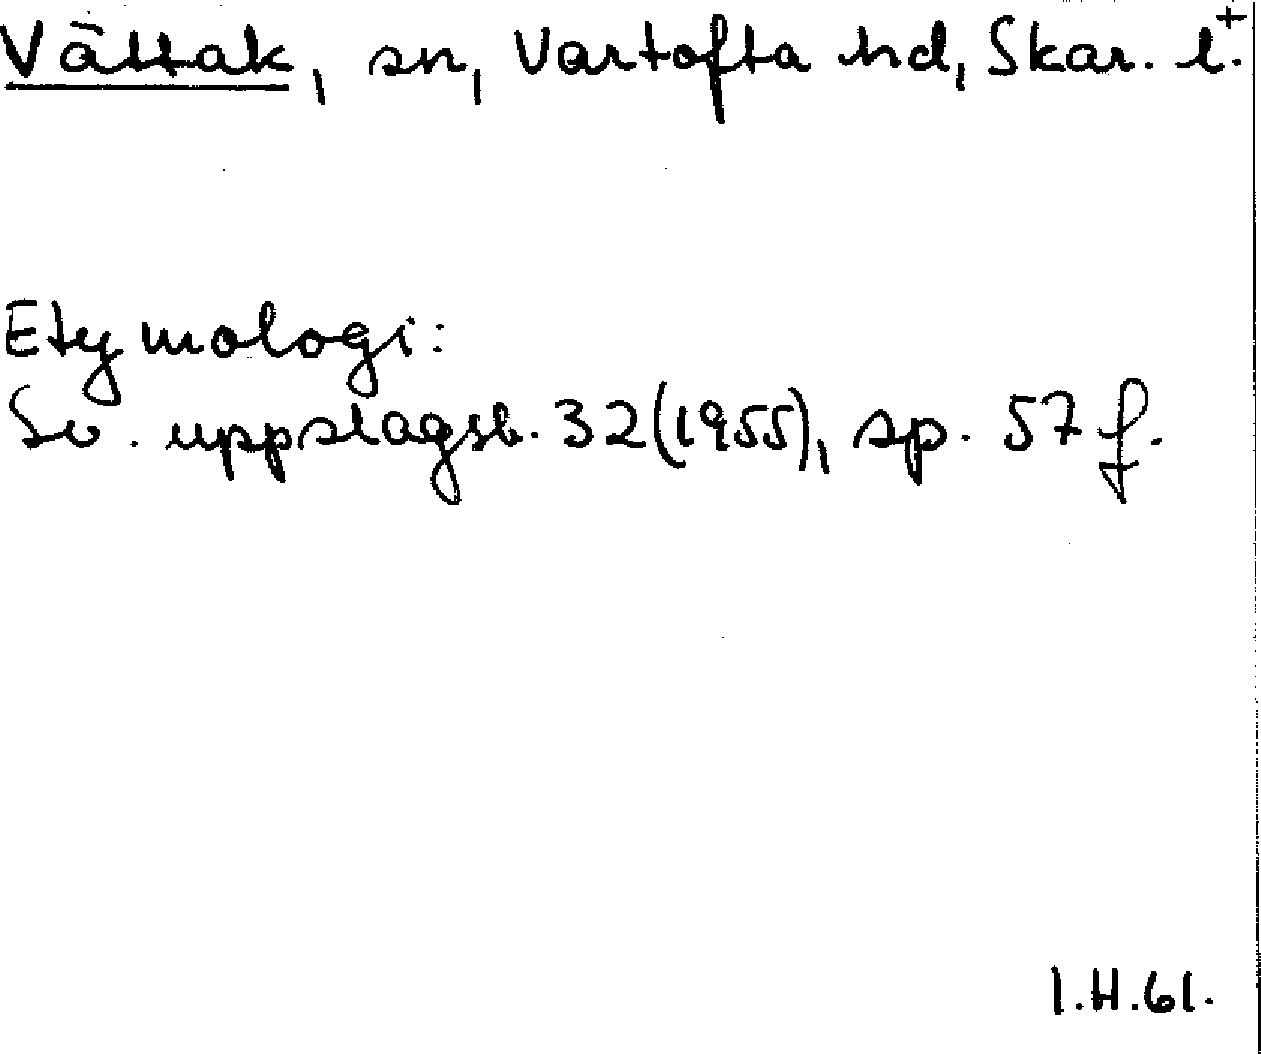 Vättak, sn, Vartofta hd, Skar. l.+
Etymologi:
Sv. uppslagsb. 32(1955), sp. 57 f.
I.H.61.